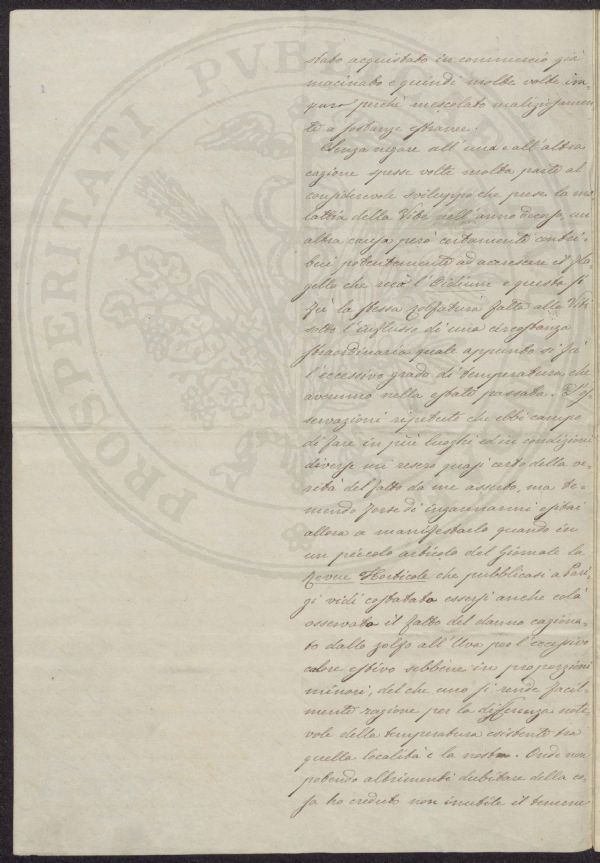 stato acquistato in commercio già
macinato e quindi molte volte im-
puro perchè mescolato maliziosamen-
te a sostanze estranee.
Senza negare all'una e all'altra
cagione spesse volte molta parte al
considerevole sviluppo che prese la ma-
lattia della Vite nell'anno decorso, un
altra causa però certamente contri-
buì potentemente ad accrescere il fla-
gello che recò l'Oidium e questa si
fù la stessa zolfatura fatta alla Vite
sotto l'influsso di una circostanza
straordinaria quale appunto si fù
l'eccessivo grado di temperatura che
avemmo nella estate passata. L'os-
servazioni ripetute che ebbi campo
di fare in più luoghi ed in condizioni
diverse mi resero quasi certo della ve-
rità del fatto da me asserto, ma te-
mendo forse di ingannarmi esitai
allora a manifestarlo quando in
un piccolo articolo del Giornale la
Revue Horticole che pubblicasi a Pari-
gi vidi costatato essersi anche colà
osservato il fatto del danno cagiona-
to dallo zolfo all'Uva per l'eccessivo
calore estivo sebbene in proporzioni
minori, del che uno si rende facil-
mente ragione per la differenza note-
vole della temperatura esistente tra
quella località e la nostra. Onde non
potendo altrimenti dubitare della co-
sa ho creduto non inutile il tenerne
PROSPERITATI PVBLI